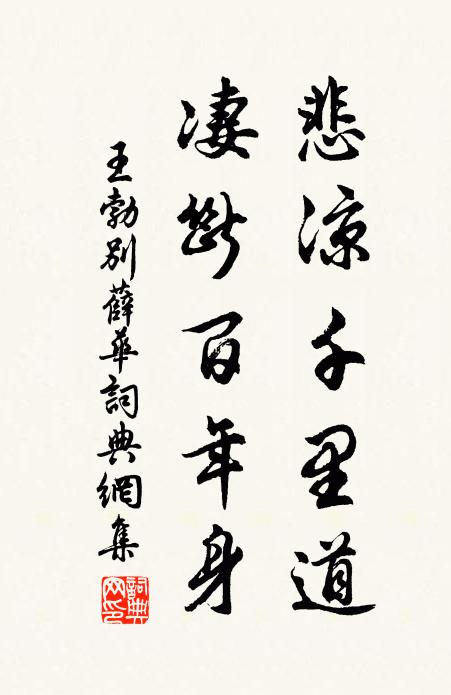 悲涼千里道
凄斷百年身
王勃別薛華詞典網集
詞典
网印